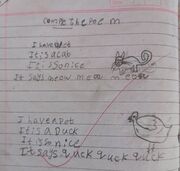 compe The poe m
I have pet
It is a cat
It is so nice
It says meow meow meow
I have n pet
It is a Duck
It is so nice
It says quack quck quck quck